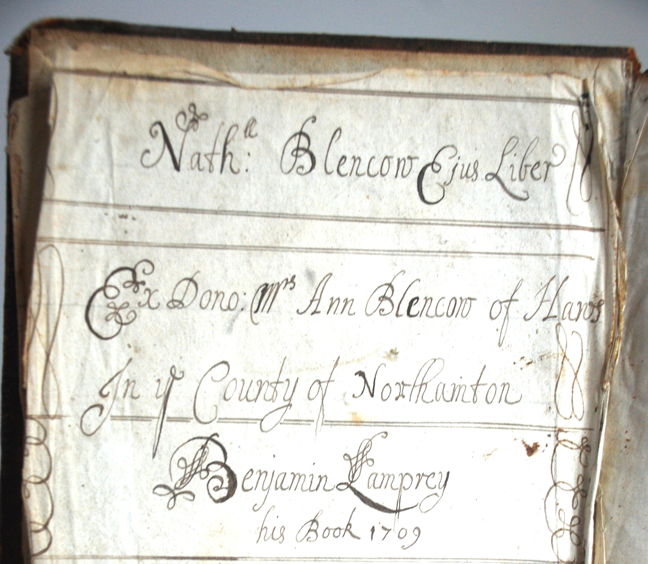 Nath:ll Blencow Ejus Liber
Ex Dono: Mrs Ann Blencow of Haws
In ye County of Northamton
Benjamin Lamprey
his Book 1709